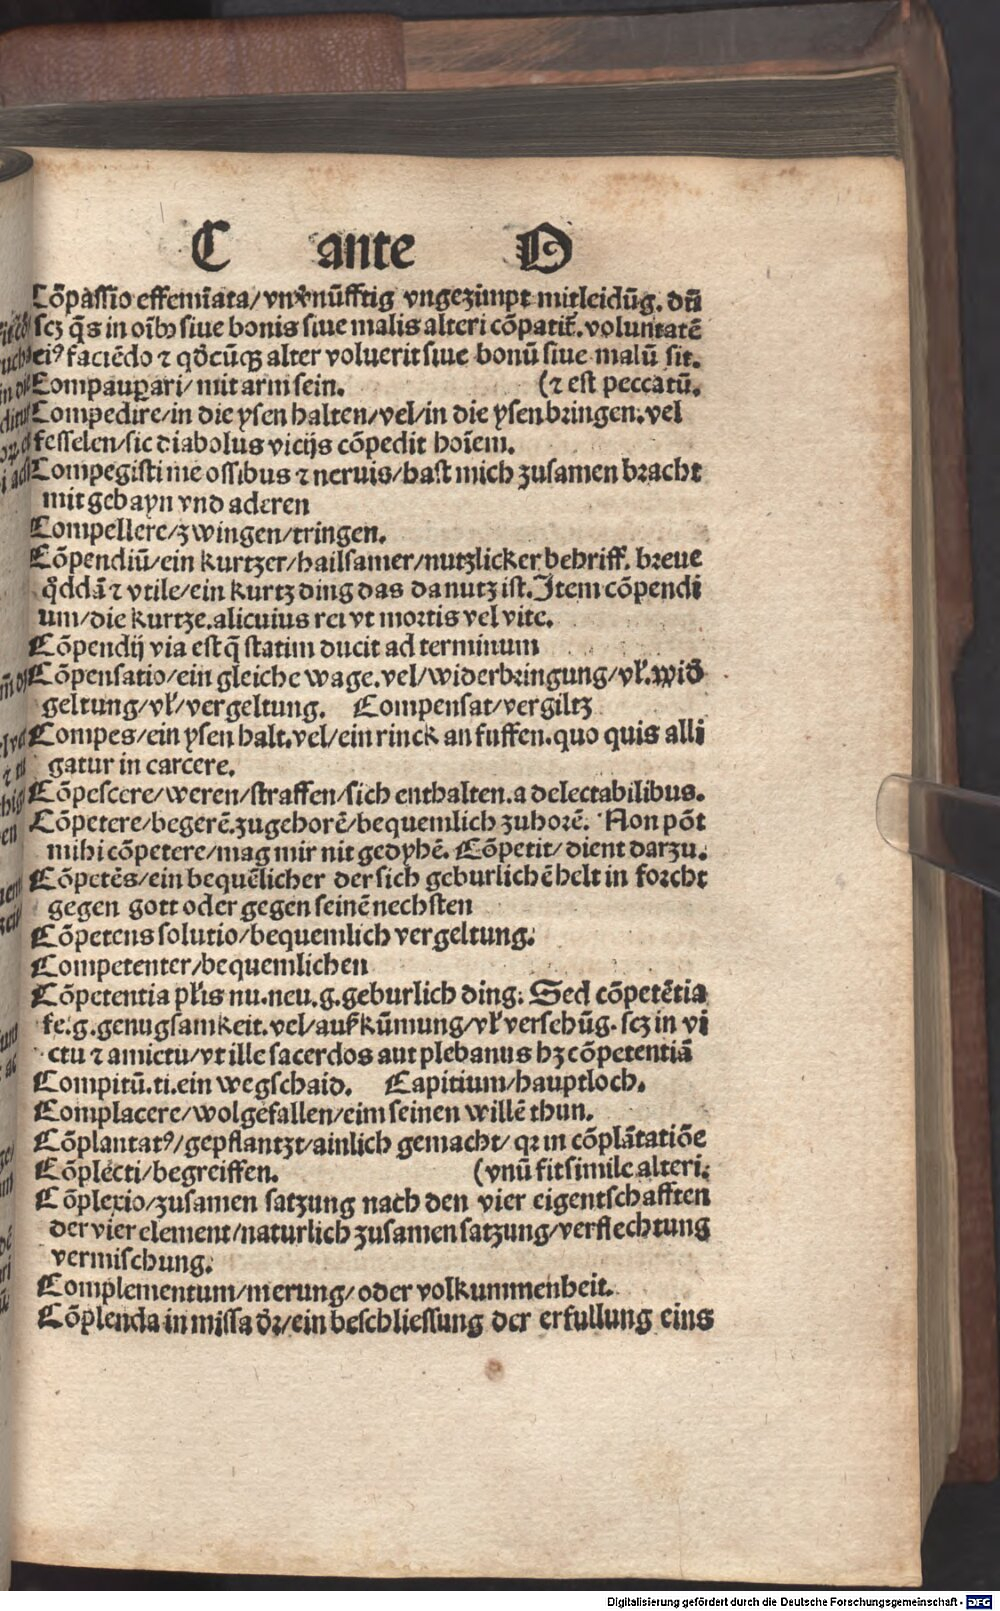 C ante O
Cõpassio effemīata/vnv̄nũfftig vngezimpt mitleidũg. dũ
scz q̃s in oĩbꝰ siue bonis siue malis alteri cõpatit̃. voluntatẽ
eiꝰ faciẽdo ⁊ qd̃cũqꝫ alter voluerit siue bonũ siue malũ sit.
Compauꝑari/mit arm sein. (⁊ est peccatũ.
Compedire/in die ysen halten/vel/in die ysen bringen. vel
fesselen/sic diabolus vicijs cõpedit hoĩem.
Compegisti me ossibus ⁊ neruis/hast mich zusamen bracht
mit gebayn vnd aderen
Compellere/zwingen/tringen.
Cõpendiũ/ein kurtzer/hailsamer/nutzlicker behriff. breue
q̊ddã ⁊ vtile/ein kurtz ding das da nutz ist. Item cõpendi
um/die kurtze. alicuius rei vt mortis vel vite.
Cõpendij via est q̃ statim ducit ad terminum
Cõpensatio/ein gleiche wage. vel/widerbringung/vł. wid̃
geltung/vł/vergeltung. Compensat/vergiltz
Compes/ein ysen halt. vel/ein rinck an fussen. quo quis alli
gatur in carcere.
Cõpescere/weren/straffen/sich enthalten. a delectabilibus.
Cõpetere/begerẽ. zugehorẽ/bequemlich zuhorẽ. Non põt
mihi cõpetere/mag mir nit gedyhẽ. Cõpetit/dient darzu.
Cõpetẽs/ein bequẽlicher der sich geburlichẽ helt in forcht
gegen gott oder gegen seinẽ nechsten
Cõpetens solutio/bequemlich vergeltung.
Competenter/bequemlichen
Cõpetentia płis nu. neu. g. geburlich ding. Sed cõpetẽtia
fe. g. genugsamkeit. vel/aufkũmung/vł versehũg. scz in vi
ctu ⁊ amictu/vt ille sacerdos aut plebanus hꝫ cõpetentiã
Compitũ. ti. ein wegschaid. Capitium/hauptloch.
Complacere/wolgefallen/eim seinen willẽ thun.
Cõplantatꝰ/gepflantzt/ainlich gemacht/ qꝛ in cõplãtatiõe
Cõplecti/begreiffen. (vnũ fit simile alteri.
Cõplexio/zusamen satzung nach den vier eigentschafften
der vier element/naturlich zusamen satzung/verflechtung
vermischung.
Complementum/merung/oder volkummenheit.
Cõplenda in missa d̃ꝛ/ein beschliessung der erfullung eins
Digitalisierung gefördert durch die Deutsche Forschungsgemeinschaft - DFG